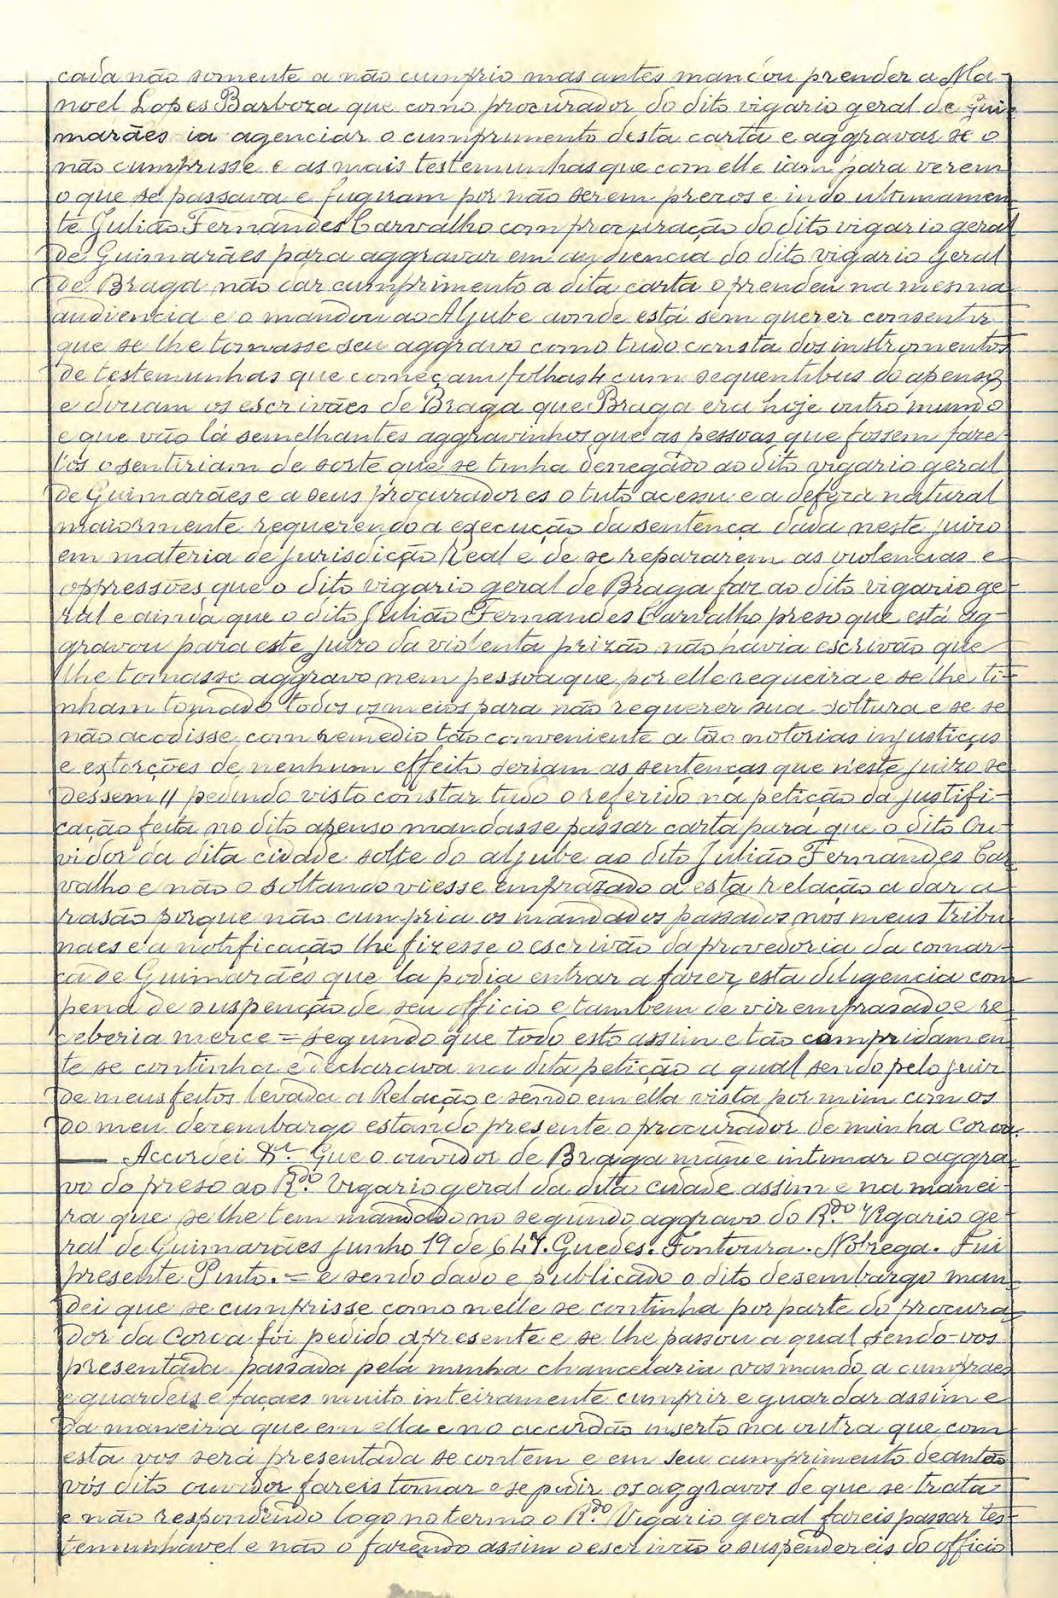 cada não somente a não cumprio mas antes mandou prender a Ma-
noel Lopes Barboza que como procurador do dito vigario geral de Gui-
marães ia agenciar o cumprimento desta carta e aggravar se o
não cumprisse e as mais testemunhas que com elle iam para verem
o que se passava e fugiram por não serem prezos e indo ultimamen-
te Julião Fernandes Carvalho com procuração do dito vigario geral
de Guimarães para aggravar em audiencia do dito vigario geral
de Braga não dar cumprimento a dita carta o prendeu na mesma
audiencia e o mandou ao Aljube aonde está sem querer consentir
que se lhe tomasse seu aggravo como tudo consta dos instromentos
de testemunhas que começam folhas 4 cum sequentibus do apenso
e diziam os escrivães de Braga que Braga era hoje outro mundo
e que vão lá semelhantes aggravinhos que as pessoas que fossem faze-
l'os o sentiriam de sorte que se tinha denegado ao dito vigario geral
de Guimarães e a seus procuradores o tuto acessu e a defeza natural
maiormente requerendo a execução da sentença dada neste juizo
em materia de jurisdicção Real e de se repararem as violencias e
oppressões que o dito vigario geral de Braga faz ao dito vigario ge-
ral e ainda que o dito Julião Fernandes Carvalho preso que está ag-
gravou para este juizo da violenta prizão não havia escrivão que
lhe tomasse aggravo nem pessoa que por elle requeira e se lhe ti-
nham tomado todos os meios para não requerer sua soltura e se se
não acodisse com remedio tão conveniente a tão notorias injustiças
e extorções de nenhum effeito seriam as sentenças que n'este juizo se
dessem // pedindo visto constar tudo o referido na petição da justifi-
cação feita no dito apenso mandasse passar carta para que o dito Ou-
vidor da dita cidade solte do aljube ao dito Julião Fernandes Car
valho e não o soltando viesse emprazado a esta relação a dar a
rasão porque não cumpria os mandados passados nos meus tribu
naes e a notificação lhe fizesse o escrivão da provedoria da comar-
ca de Guimarães que la podia entrar a fazer esta diligencia com
pena de suspenção de seu officio e tambem de vir emprasado e re-
ceberia merce = segundo que todo esto assim e tão compridamen
te se continha e declarava na dita petição a qual sendo pelo juiz
de meus feitos levada a Relação e sendo em ella vista por mim com os
do meu dezembargo estando presente o procurador de minha Coroa.
— Accordei &ª. Que o ouvidor de Braga mande intimar o aggra-
vo do preso ao R.do Vigario geral da dita cidade assim e na manei-
ra que se lhe tem mandado no segundo aggravo do R.do Vigario ge-
ral de Guimarães Junho 19 de 647. Guedes. Fontoura. Nobrega. Fui
presente Pinto. = e sendo dado e publicado o dito desembargo man-
dei que se cumprisse como nelle se continha por parte do procura-
dor da Coroa foi pedido a presente e se lhe passou a qual sendo-vos
presentada passada pela minha chancelaria vos mando a cumpraes
e guardeis e façaes muito inteiramente cumprir e guardar assim e
da maneira que em ella e no accordão inserto na outra que com
esta vos será presentada se contem e em seu cumprimento deante
vós dito ouvidor fareis tomar e se pedir os aggravos de que se trata
e não respondendo logo no termo o R.do Vigario geral fareis passar tes-
temunhavel e não o fazendo assim o escrivão o suspendereis do officio